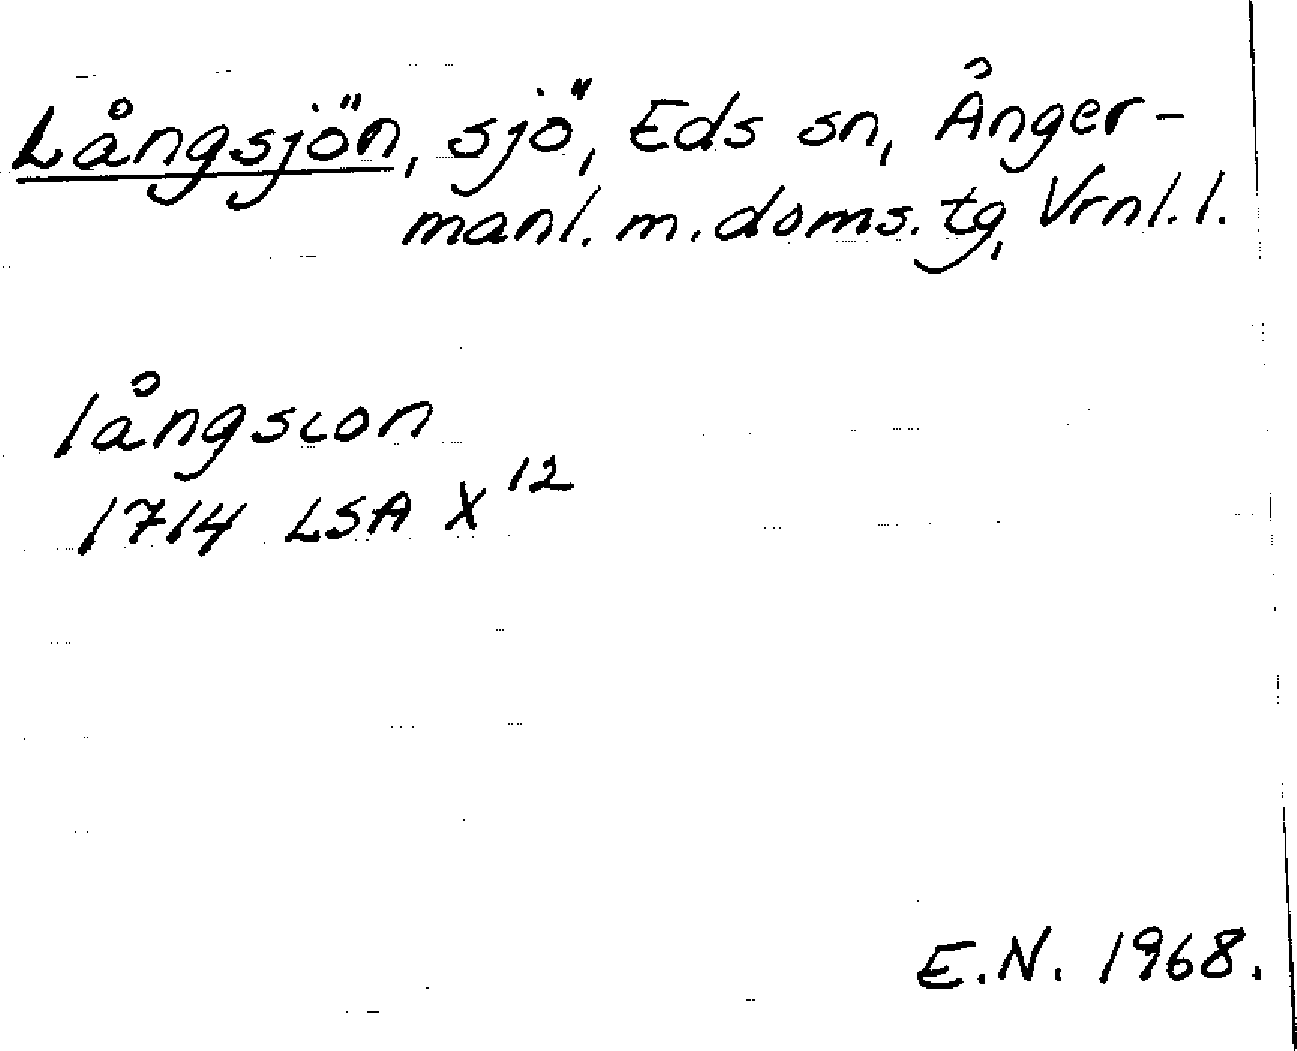 Långsjön, sjö, Eds sn, Ånger-
manl. m. doms. tg, Vrnl. l.
långsion
1714 LSA X 12
E.N. 1968.